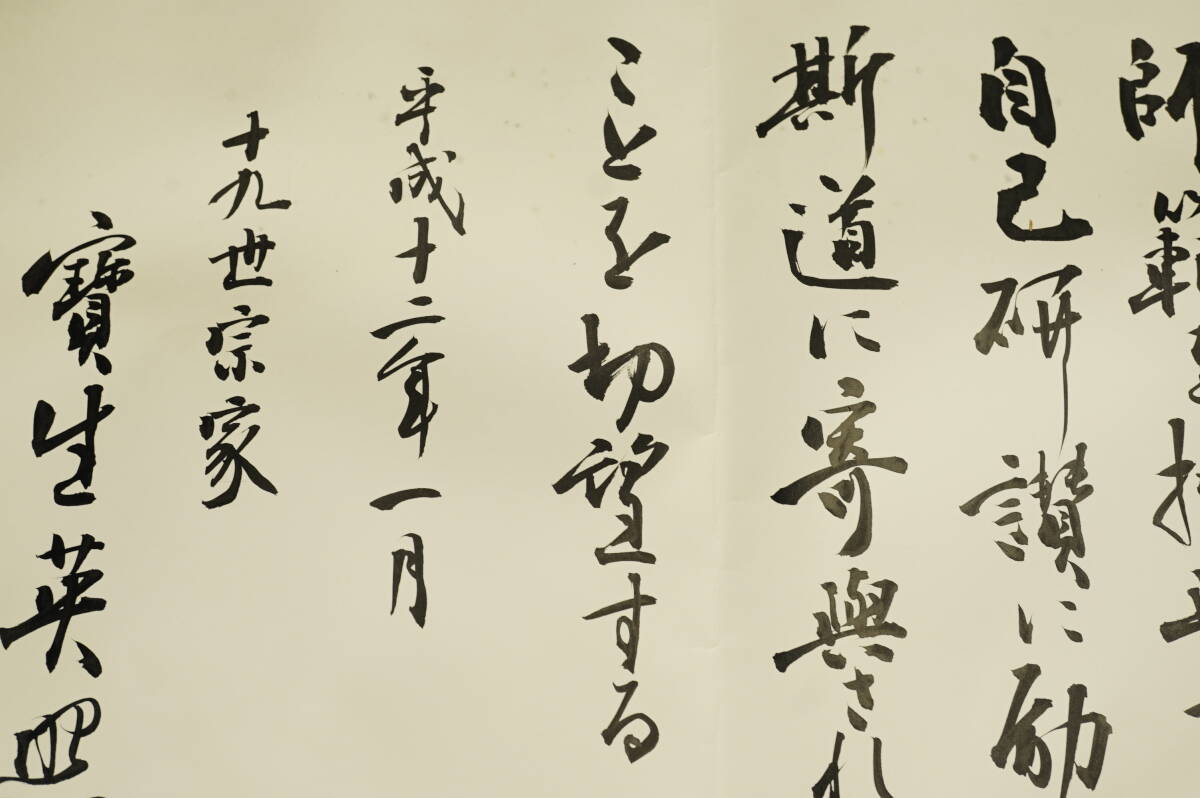 師範を
自己研讃に励
斯道に寄與され
ことを切望する
平成十二年一月
十九世宗家
寶生英照